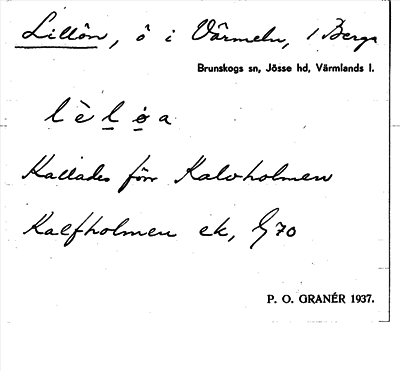 Lillön, ö i Värmeln, 1 Berga
Brunskogs sn, Jösse hd, Värmlands l.
lèløa
Kallades förr Kalvholmen
Kalfholmen ek, G70
P. O. GRANÉR 1937.